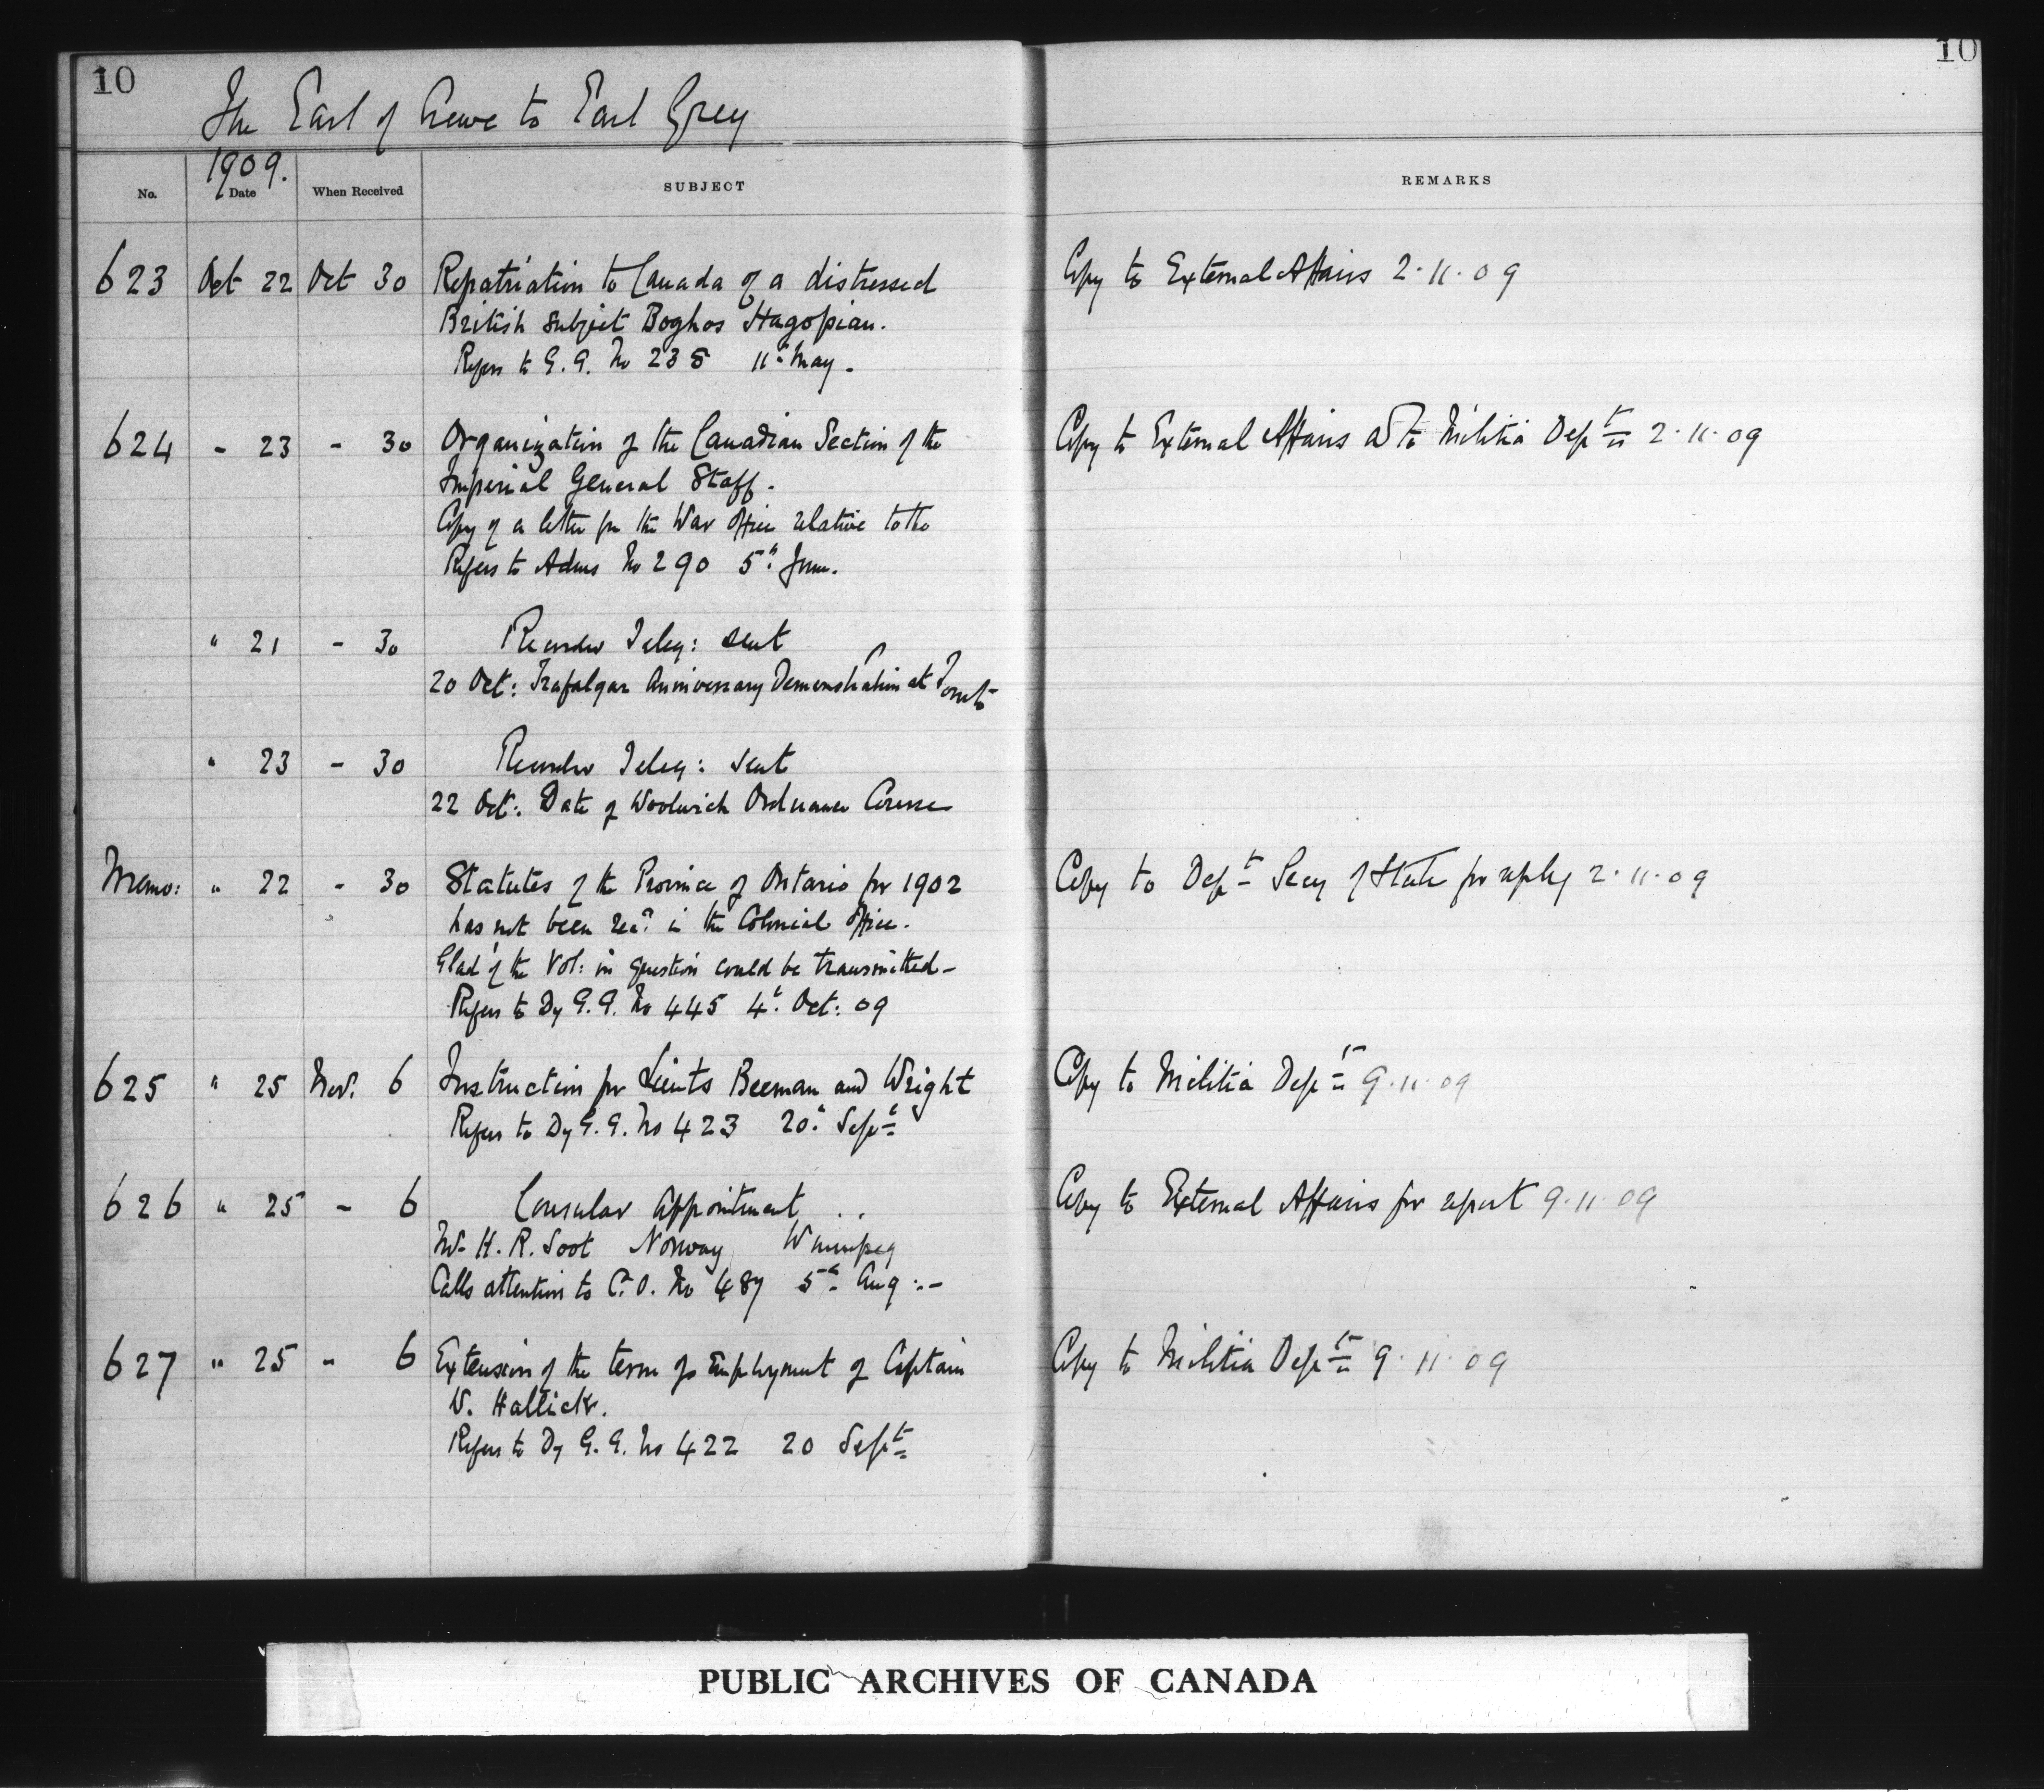 10
10
The Earl of Crewe to Earl Grey
1909.
No. Date When Received SUBJECT REMARKS
623 Oct 22 Oct 30 Repatriation to Canada of a distressed Copy to External Affairs 2.11.09
British Subject Boghos Hagopian.
Refers to G.G. No 235 11th May.
624 - 23 - 30 Organization of the Canadian Section of the Copy to External Affairs also to Militia Dept 2.11.09
Imperial General Staff.
Copy of a letter fm the War Office relative to the
Refers to Adms No 290 5th June.
" 21 - 30 Teleg: sent
20 Oct: Trafalgar Anniversary Demonstration at Toronto
" 23 - 30 Teleg: sent
22 Oct: Date of Woolwich Ordnance Course
Memo: " 22 - 30 Statutes of the Province of Ontario for 1902 Copy to Dept Secy of State for reply 2.11.09
has not been recd in the Colonial Office.
Glad if the Vol: in question could be transmitted-
Refers to Dy G.G. No 445 4th Oct: 09
625 " 25 Nov. 6 Instruction for Lieuts Beeman and Wright Copy to Militia Dept 9.11.09
Refers to Dy G.G. No 423 20th Sept
626 " 25 - 6 Consular Appointment Copy to External Affairs for report 9.11.09
Mr H.R. Soot Norway Winnipeg
Calls attention to C.O. No 487 5th Aug:-
627 " 25 - 6 Extension of the term of Employment of Captain Copy to Militia Dept 9.11.09
W. Hallick.
Refers to Dy G.G. No 422 20 Sept
PUBLIC ARCHIVES OF CANADA